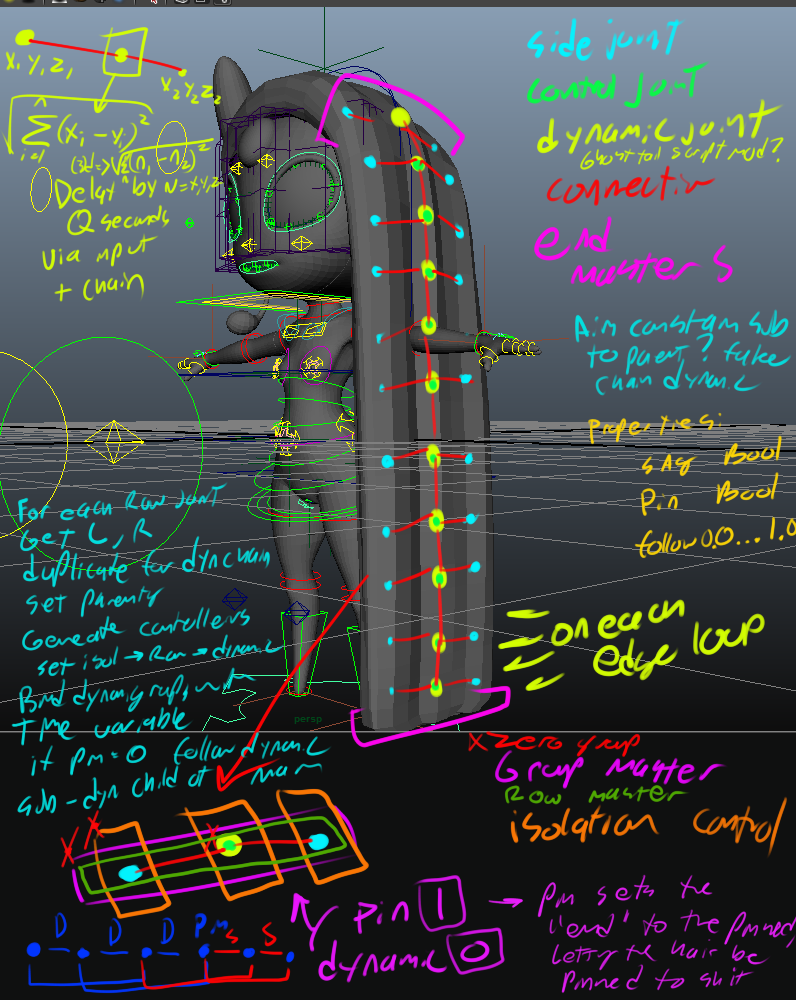 side joint
control joint
dynamic joint
Ghost tail script mod?
connection
end
masters
x, y, z,
x2 y2 z2
Σ (xi - yi)²
i=1
Delay by N = x, y, z
Q seconds
Via input
+ chain
Aim constrain sub
to parent? fake
chain dynamic
Properties:
sag Bool
Pin Bool
follow 0.0...1.0
For each Row Joint
Get L, R
duplicate for dyn chain
set Parents
Generate controllers
set isol → Row → dynamic
Bind dynamic group, with
Time variable
if Pin = 0 follow dynamic
sub-dyn child of main
on each
edge loop
persp
X zero group
Group Master
Row master
isolation control
D D D Pin S S
Pin 1 →
dynamic 0
Pin sets the
"end" to the pinned,
Letting the hair be
Pinned to shit